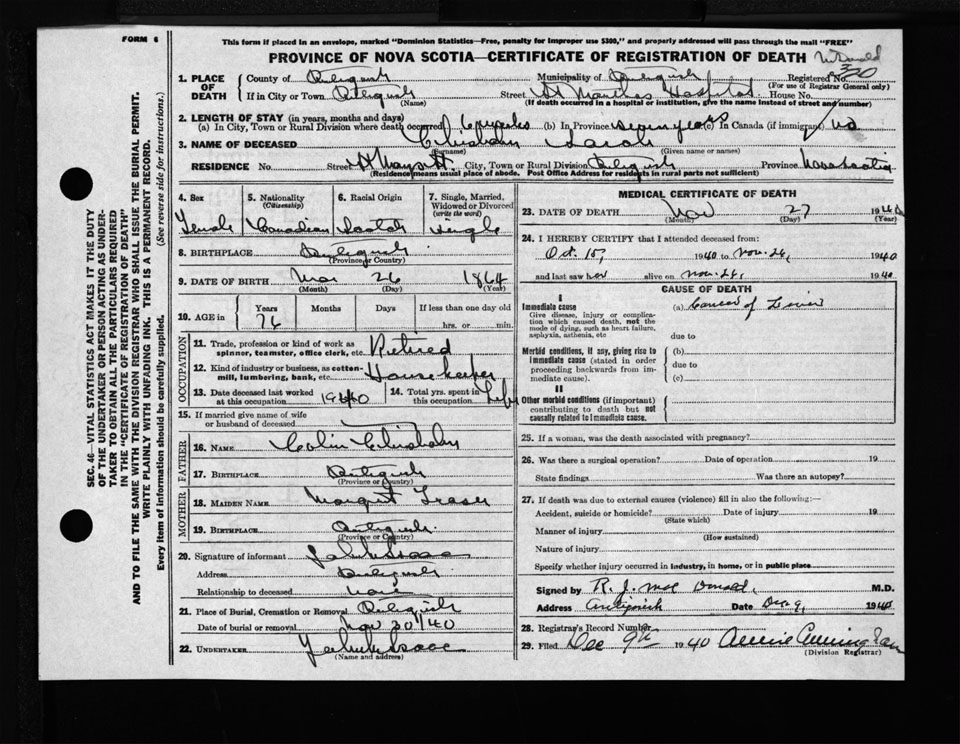 FORM 6
This form if placed in an envelope, marked "Dominion Statistics—Free, penalty for improper use $300," and properly addressed will pass through the mail "FREE"
PROVINCE OF NOVA SCOTIA—CERTIFICATE OF REGISTRATION OF DEATH
SEC. 46—VITAL STATISTICS ACT MAKES IT THE DUTY
OF THE UNDERTAKER OR PERSON ACTING AS UNDER-
TAKER TO OBTAIN ALL THE PARTICULARS REQUIRED
IN THE "CERTIFICATE OF REGISTRATION OF DEATH"
AND TO FILE THE SAME WITH THE DIVISION REGISTRAR WHO SHALL ISSUE THE BURIAL PERMIT.
WRITE PLAINLY WITH UNFADING INK. THIS IS A PERMANENT RECORD.
Every item of information should be carefully supplied. (See reverse side for instructions.)
1. PLACE OF DEATH County of Antigonish Municipality of Antigonish Registered No.
(For use of Registrar General only)
If in City or Town Antigonish Street St Marthas Hospital House No.
(Name) (If death occurred in a hospital or institution, give the name instead of street and number)
2. LENGTH OF STAY (in years, months and days)
(a) In City, Town or Rural Division where death occurred 6 weeks (b) In Province seven years (c) In Canada (if immigrant) no
3. NAME OF DECEASED Chisholm Sarah
(Surname) (Given name or names)
RESIDENCE No. Street St Mary St City, Town or Rural Division Antigonish Province Nova Scotia
(Residence means usual place of abode. Post Office Address for residents in rural parts not sufficient)
4. Sex Female
5. Nationality (Citizenship) Canadian
6. Racial Origin Scotch
7. Single, Married, Widowed or Divorced (write the word) Single
8. BIRTHPLACE Antigonish
(Province or Country)
9. DATE OF BIRTH 26 1864
(Month) (Day) (Year)
10. AGE in Years 76 Months Days If less than one day old
hrs. or min.
OCCUPATION
11. Trade, profession or kind of work as spinner, teamster, office clerk, etc. Retired
12. Kind of industry or business, as cotton-mill, lumbering, bank, etc. Housekeeper
13. Date deceased last worked at this occupation 1940
14. Total yrs. spent in this occupation Life
15. If married give name of wife or husband of deceased
FATHER
16. NAME Colin Chisholm
17. BIRTHPLACE Antigonish
(Province or Country)
MOTHER
18. MAIDEN NAME Margret Fraser
19. BIRTHPLACE Antigonish
(Province or Country)
20. Signature of informant
Address Antigonish
Relationship to deceased none
21. Place of Burial, Cremation or Removal Antigonish
Date of burial or removal Nov 30/40
22. UNDERTAKER
(Name and address)
MEDICAL CERTIFICATE OF DEATH
23. DATE OF DEATH Nov 27 1940
(Month) (Day) (Year)
24. I HEREBY CERTIFY that I attended deceased from:
Oct. 15, 1940 to Nov. 26, 1940
and last saw her alive on Nov. 26, 1940
CAUSE OF DEATH
I
Immediate cause (a) Cancer of Liver
Give disease, injury or complication which caused death, not the mode of dying, such as heart failure, asphyxia, asthenia, etc
due to
Morbid conditions, if any, giving rise to immediate cause (stated in order proceeding backwards from immediate cause). (b)
due to
(c)
II
Other morbid conditions (if important) contributing to death but not causally related to immediate cause.
25. If a woman, was the death associated with pregnancy?
26. Was there a surgical operation? Date of operation 19
State findings Was there an autopsy?
27. If death was due to external causes (violence) fill in also the following:—
Accident, suicide or homicide? Date of injury 19
(State which)
Manner of injury
(How sustained)
Nature of injury
Specify whether injury occurred in industry, in home, or in public place
Signed by R. J. Mac Donald, M.D.
Address Antigonish Date Dec 9, 1940
28. Registrar's Record Number
29. Filed Dec 9th 1940 Cunningham
(Division Registrar)